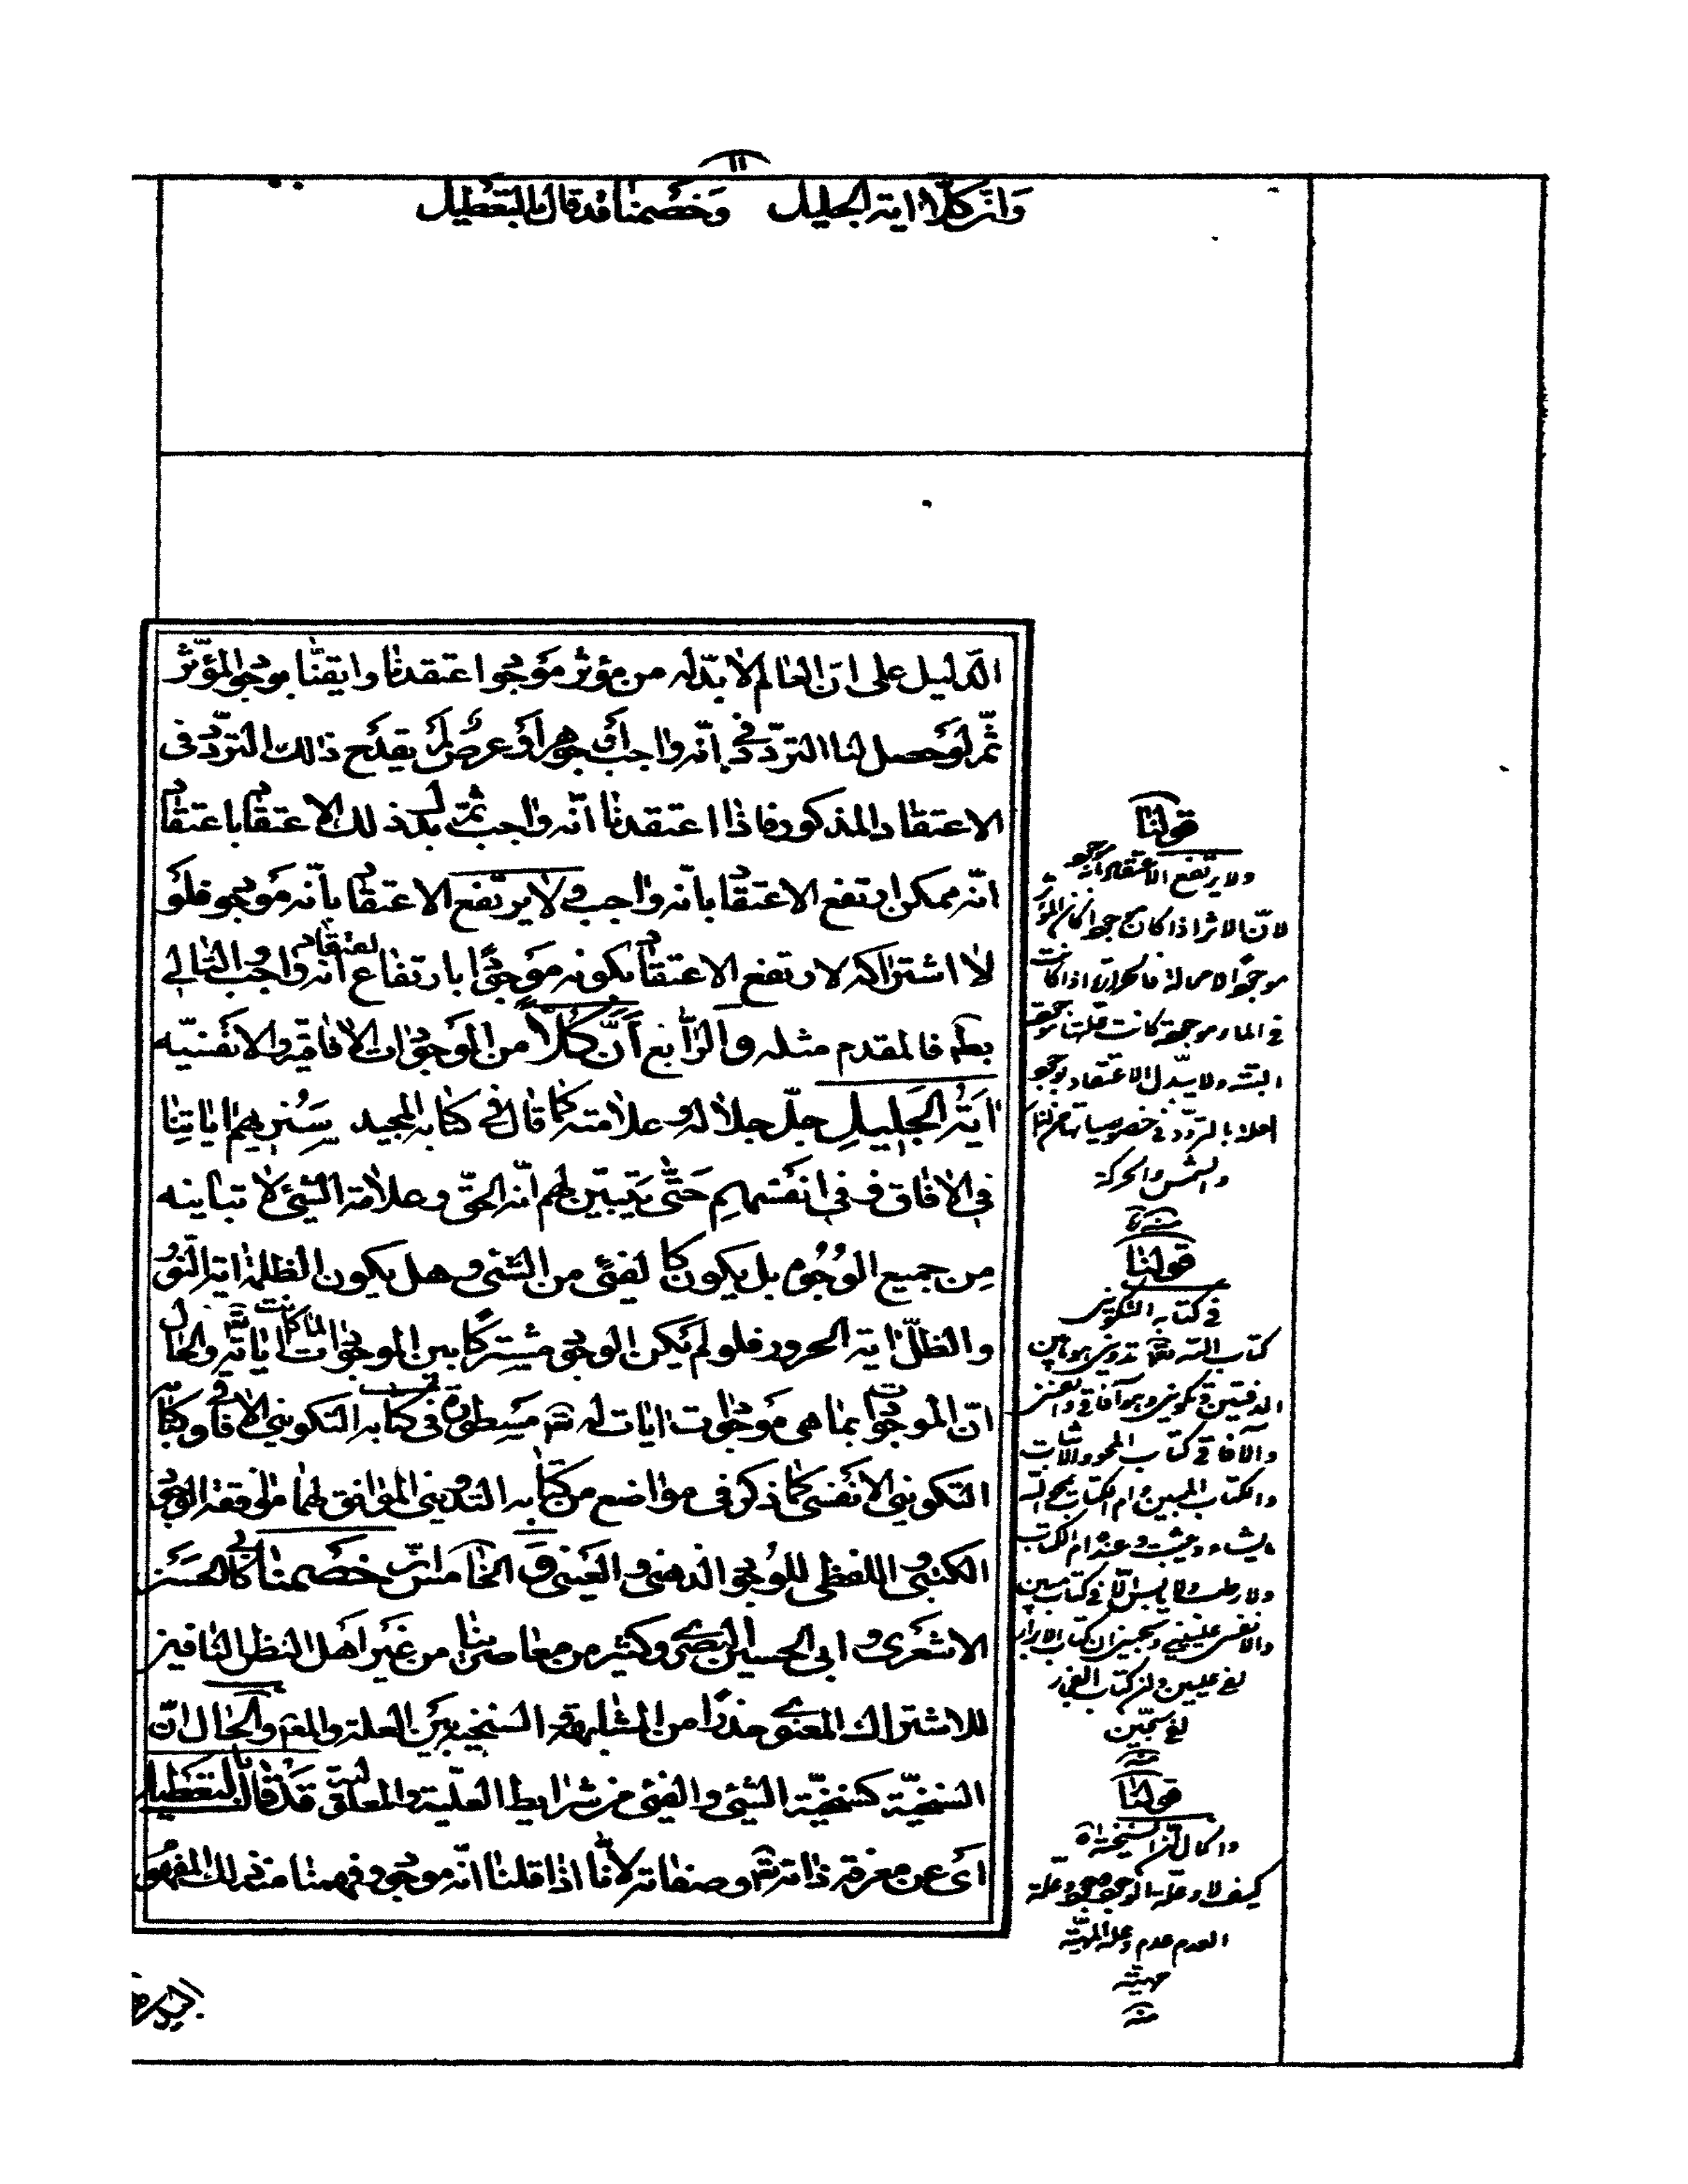 ١١
وَانَّ كُلّاً اية الجليل وَخَصمنا قد قال بالتعطيل
الدّليل على انّ العالم لا بدّ له من مؤثر موجود اعتقدنا وايقنّا بوجود المؤثّر
ثمّ لو حصل لنا التردّد فى انّه واجب او جوهر او عرض لم يقدح ذلك التردّد فى
الاعتقاد المذكور فاذا اعتقدنا انّه واجب ثمّ بدّل ذلك الاعتقاد باعتقاد
انّه ممكن ارتفع الاعتقاد بانّه واجب ولا يرتفع الاعتقاد بانّه موجود فلو
لا اشتراكه لارتفع الاعتقاد بكونه موجودًا بارتفاع اعتقاد انّه واجب والتالى
بط فالمقدم مثله والرّابع اَنَّ كُلّاً من الموجودات الافاقيّه والانفسيّه
ايَةُ الجَليلِ جلّ جلاله وعلامته كما قال فى كتابه المجيد سَنُريهم اياتِنا
فى الافاق وفى انفسهم حَتّى يتبيّن لهم انّه الحقّ وعلامة الشئ لا تباينه
مِن جميع الوُجُوه بل يكون كالفئ من الشئ وهل يكون الظلمة اية النّور
والظلّ اية الحرور فلو لم يكن الوجود مشتركا بين الموجودات لما كانت اياته تع والحال
انّ الموجودات بما هى موجودات ايات له تع مسطورة فى كتابه التكوينى الافاقى وكتابه
التكوينى الانفسى كما ذكر فى مواضع من كتابه التدوينى الموافق لهما موافقة الوجود
الكتبى واللفظى للوجود الذهنى والعينى وَ الخامس انّ خَصمنا كابى الحسن
الاشعرى وابى الحسين البصرى وكثير من معاصرينا من غير اهل النظر النافين
للاشتراك المعنوى حذرًا من المشابهة والسنخيه بين العلة والمع والحال انّ
السنخيّة كسنخيّة الشئ والفئ من شرايط العلّية والمعلولية قَد قالَ بالتعطيل
اى عن معرفة ذاته تع وصفاته لانّا اذا قلنا انّه موجود وفهمنا منه ذلك المفهوم
قولنا
ولا يرتفع الاعتقاد بانه موجود
لانّ الاثر اذا كان موجودا كان المؤثر
موجودًا لا محالة فالحرارة اذا كانت
فى الماء موجودة كانت علتها موجودة
البتة ولا يبدّل الاعتقاد بوجود
العلة بالتردّد فى خصوصياتها من النار
والشمس والحركة
منه
قولنا
فى كتابه التكوينى
كتاب الله تع تدوينى هو ما بين
الدفتين وتكوينى وهو آفاقى وانفسى
والآفاقى كتاب المحو والاثبات
والكتاب المبين وام الكتاب يمحو الله
ما يشاء ويثبت وعنده ام الكتاب
ولا رطب ولا يابس الّا فى كتاب مبين
والانفسى علّيينى وسجينى ان كتاب الابرار
لفى عليين وان كتاب الفجار
لفى سجّين
منه
قولنا
والحال انّ السنخية اه
كيف لا وعلّة الوجود وجود وعلة
العدم عدم وعلة المهيّة
مهيّة
منه